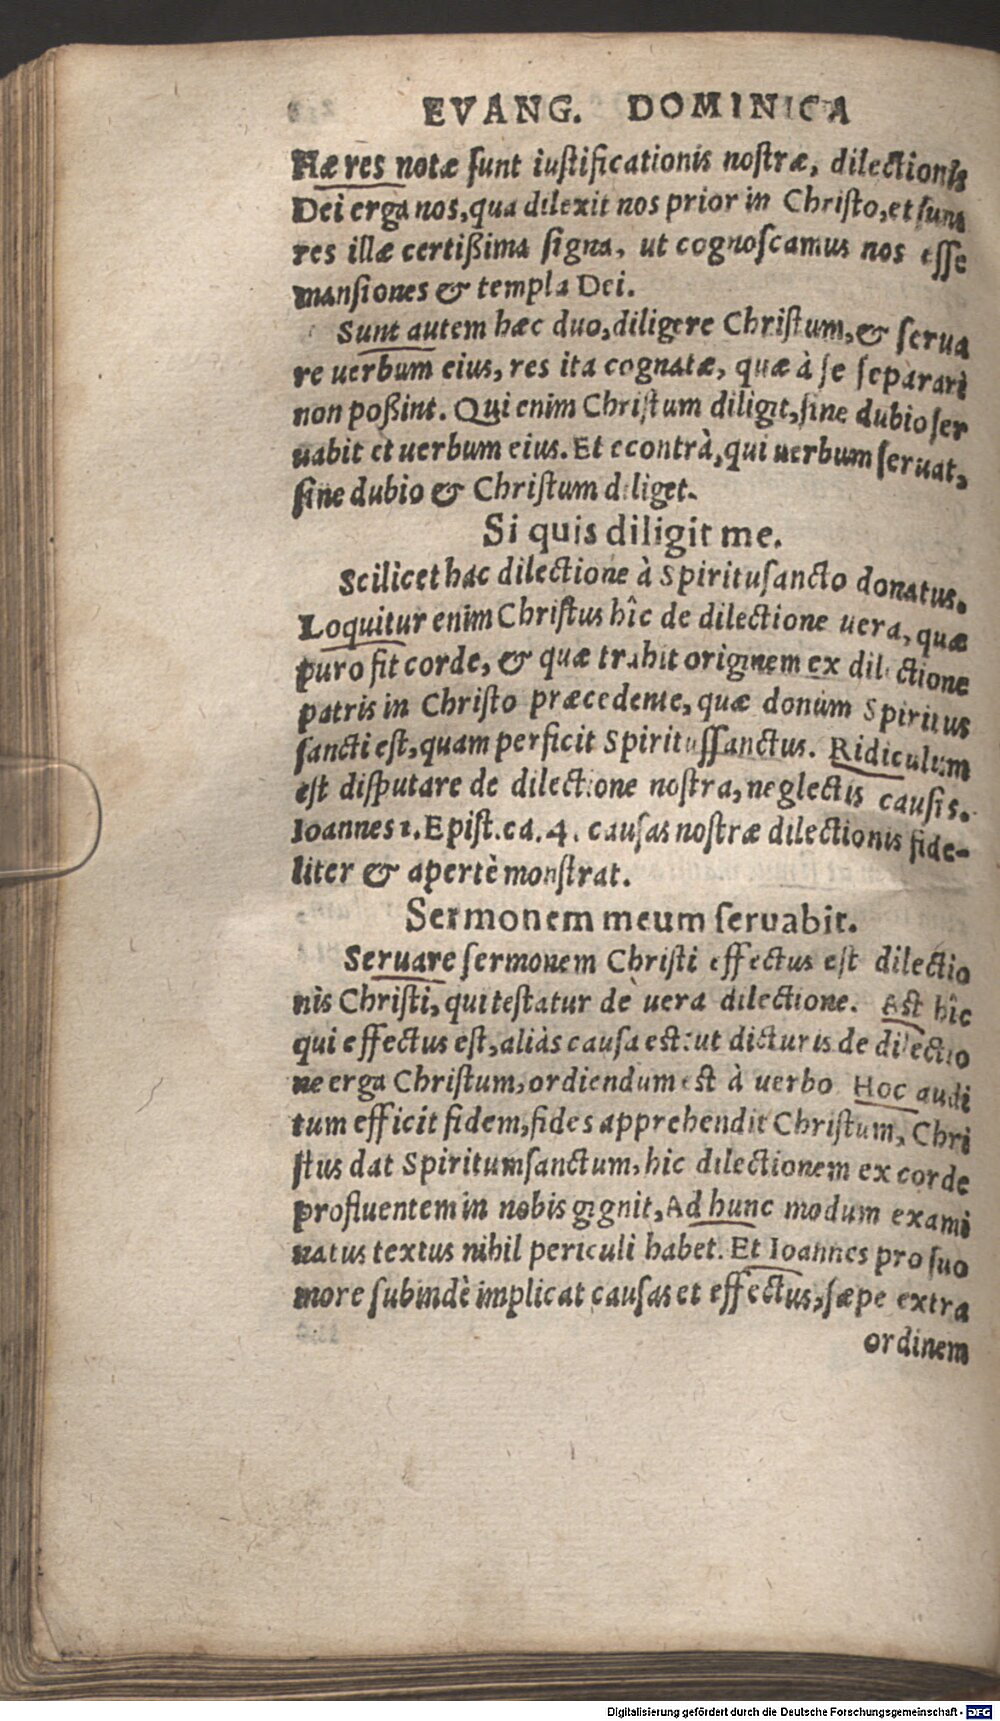 EVANG. DOMINICA
Hæ res notæ ſunt iuſtificationis noſtræ, dilectionis
Dei erga nos, qua dilexit nos prior in Chriſto, et ſunt
res illæ certißima ſigna, ut cognoſcamus nos eſſe
manſiones & templa Dei.
Sunt autem hæc duo, diligere Chriſtum, & ſerua
re uerbum eius, res ita cognatæ, quæ à ſe ſeparari
non poßint. Qui enim Chriſtum diligit, ſine dubio ſer
uabit et uerbum eius. Et econtrà, qui uerbum ſeruat,
ſine dubio & Chriſtum diliget.
Si quis diligit me.
Scilicet hac dilectione à Spirituſancto donatus.
Loquitur enim Chriſtus hîc de dilectione uera, quæ
puro fit corde, & quæ trahit originem ex dilectione
patris in Chriſto præcedente, quæ donum Spiritus
ſancti eſt, quam perficit Spirituſſanctus. Ridiculum
eſt diſputare de dilectione noſtra, neglectis cauſis.
Ioannes 1. Epiſt. ca. 4. cauſas noſtræ dilectionis fide-
liter & apertè monſtrat.
Sermonem meum ſeruabit.
Seruare ſermonem Chriſti effectus eſt dilectio
nis Chriſti, qui teſtatur de uera dilectione. Aſt hîc
qui effectus eſt, aliàs cauſa eſt: ut dicturis de dilectio
ne erga Chriſtum, ordiendum eſt à uerbo. Hoc audi
tum efficit fidem, fides apprehendit Chriſtum, Chri
ſtus dat Spiritumſanctum, hic dilectionem ex corde
profluentem in nobis gignit, Ad hunc modum exami
natus textus nihil periculi habet. Et Ioannes pro ſuo
more ſubindè implicat cauſas et effectus, ſæpe extra
ordinem
Digitalisierung gefördert durch die Deutsche Forschungsgemeinschaft - DFG